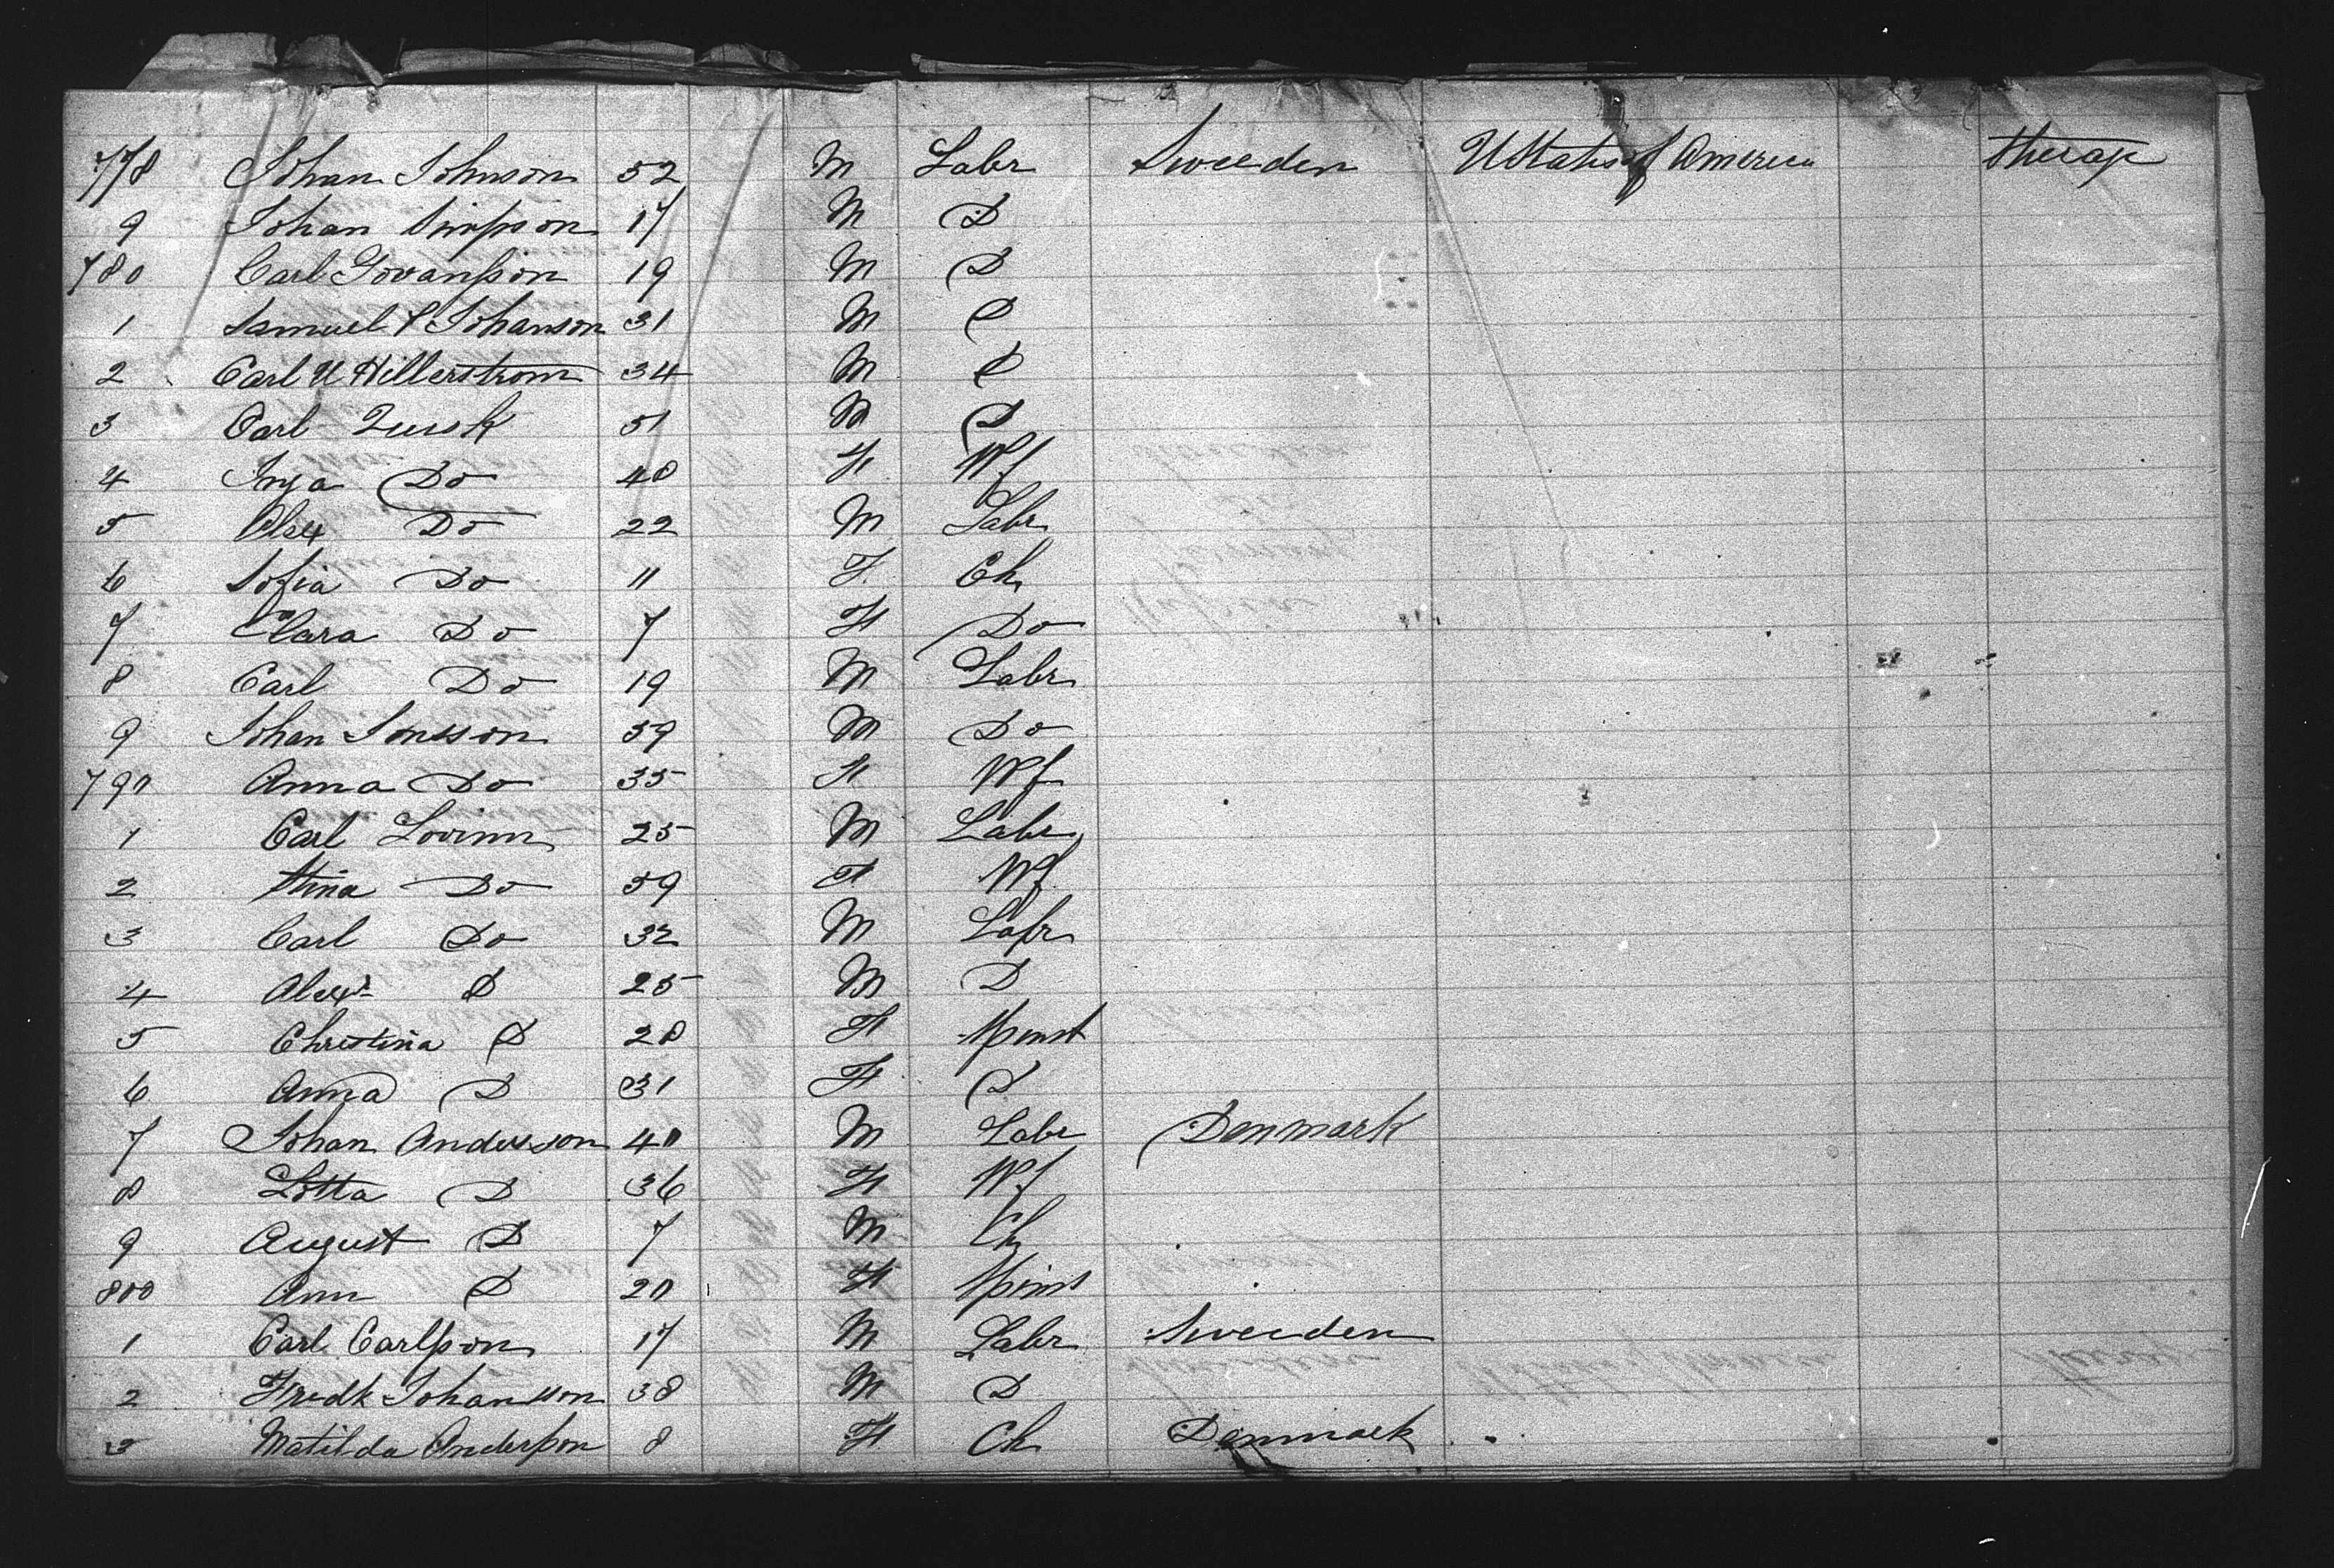 778 Johan Johnson 52 M Labr Sweeden UStates of America Sterage
9 Johan Simpson 17 M D
780 Carl Govanson 19 M D
1 Samuel P Johanson 31 M D
2 Carl U Hillerstrom 34 M D
3 Carl 51 M D
4 Inga Do 48 F Wf
5 Alex Do 22 M Labr
6 Sofia Do 11 F Ch
7 Clara Do 7 F Do
8 Carl Do 19 M Labr
9 Johan Jonsson 39 M Do
790 Anna Do 35 F Wf
1 Carl 25 M Labr
2 Stina Do 59 F Wf
3 Carl Do 32 M Labr
4 Alex D 25 M D
5 Christina D 28 F Spinst
6 Anna D 31 F D
7 Johan Andersson 40 M Labr Denmark
8 Lotta D 36 F Wf
9 August D 7 M Ch
800 Ann D 20 F Spinst
1 Carl Carlson 17 M Labr Sweeden
2 Fredk Johansson 38 M D
3 Matilda Anderson 8 F Ch Denmark